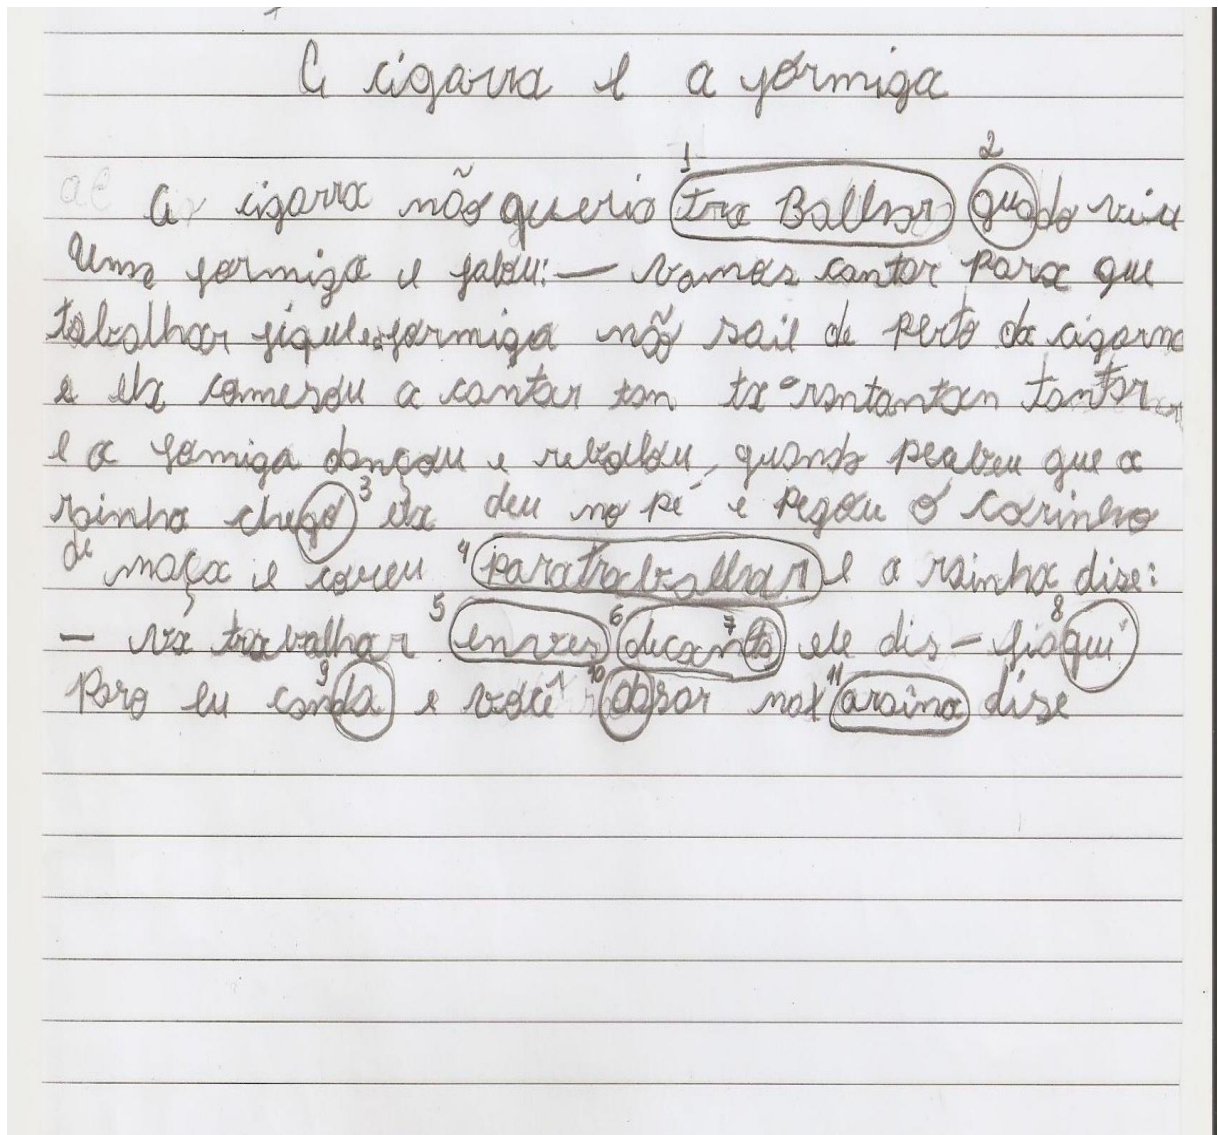 A cigarra e a formiga
1 2
A cigarra não queria tra Balhar quado viu
Uma formiga e falou: — vamos cantar para que
tabalhar fique formiga não saie de perto da cigarra
e ela comesou a cantar tan ta rantantan tantan
e a fomiga dançou e rebolou, quando peabeu que a
rainha chego 3 ela deu no pé e pegou o carinho
de maça e correu 4 paratrabalhar e a rainha dise:
— vá trabalhar 5 enves 6 decan 7 ta ele dis — fia 8 qui
para eu can 9 da e você 10 dasar mal 11 araina dise